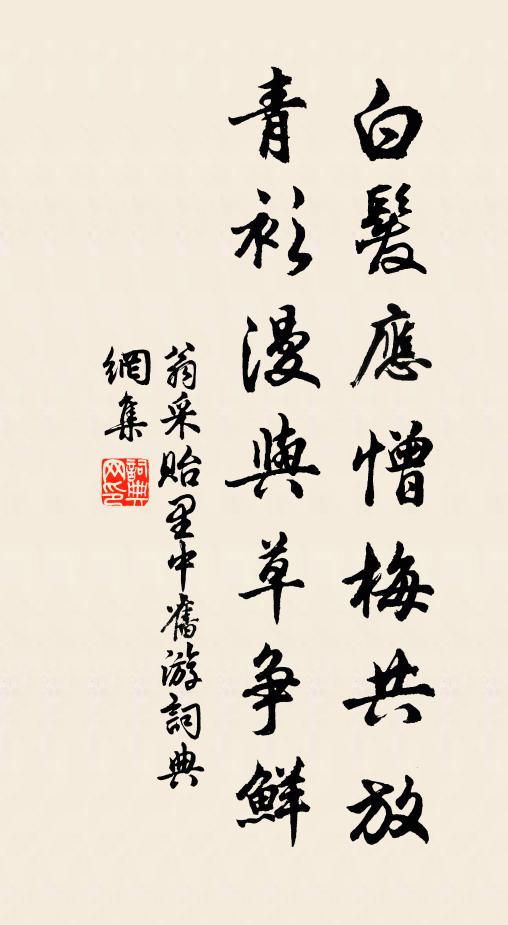 白髮應憎梅共放
青衫漫與草争鮮
翁采貽里中舊游詞典
網集
詞典
网印